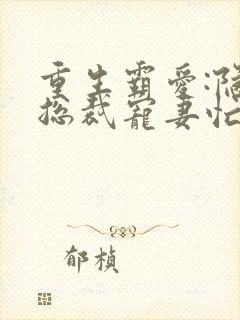 重生霸爱:隐
总裁宠妻忙
郁桢